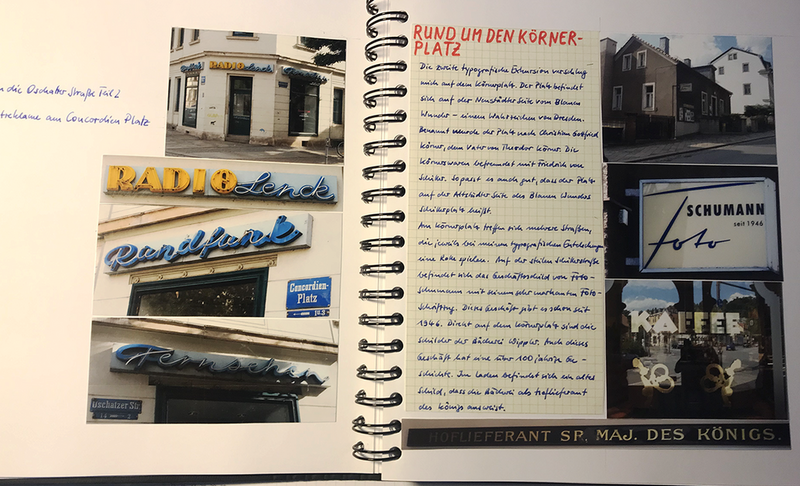 die Oschatzer Straße Teil 2
reklame am Concordien Platz
RADIO Lenck
RADIO Lenck
Rundfunk
Concordien-
Platz
Fernsehen
Oschatzer Str.
RUND UM DEN KÖRNER-
PLATZ
Die zweite typografische Exkursion verschlug
mich auf den Körnerplatz. Der Platz befindet
sich auf der Neustädter Seite vom Blauen
Wunder – einem Wahrzeichen von Dresden.
Benannt wurde der Platz nach Christian Gottfried
Körner, dem Vater von Theodor Körner. Die
Körners waren befreundet mit Friedrich von
Schiller. So passt es auch gut, dass der Platz
auf der Altstädter Seite des Blauen Wunders
Schillerplatz heißt.
Am Körnerplatz treffen sich mehrere Straßen,
die jeweils bei meinen typografischen Entdeckungen
eine Rolle spielen. Auf der steilen Schillerstraße
befindet sich das Geschäftsschild von Foto-
schumann mit seinem sehr markanten Foto-
Schriftzug. Dieses Geschäft gibt es schon seit
1946. Direkt auf dem Körnerplatz sind die
Schilder der Bäckerei Wippler. Auch dieses
Geschäft hat eine über 100 jährige Ge-
schichte. Im Laden befindet sich ein altes
Schild, dass die Bäckerei als Hoflieferant
des Königs ausweist.
SCHUMANN
seit 1946
foto
KAFFEE
HOFLIEFERANT SR. MAJ. DES KÖNIGS.